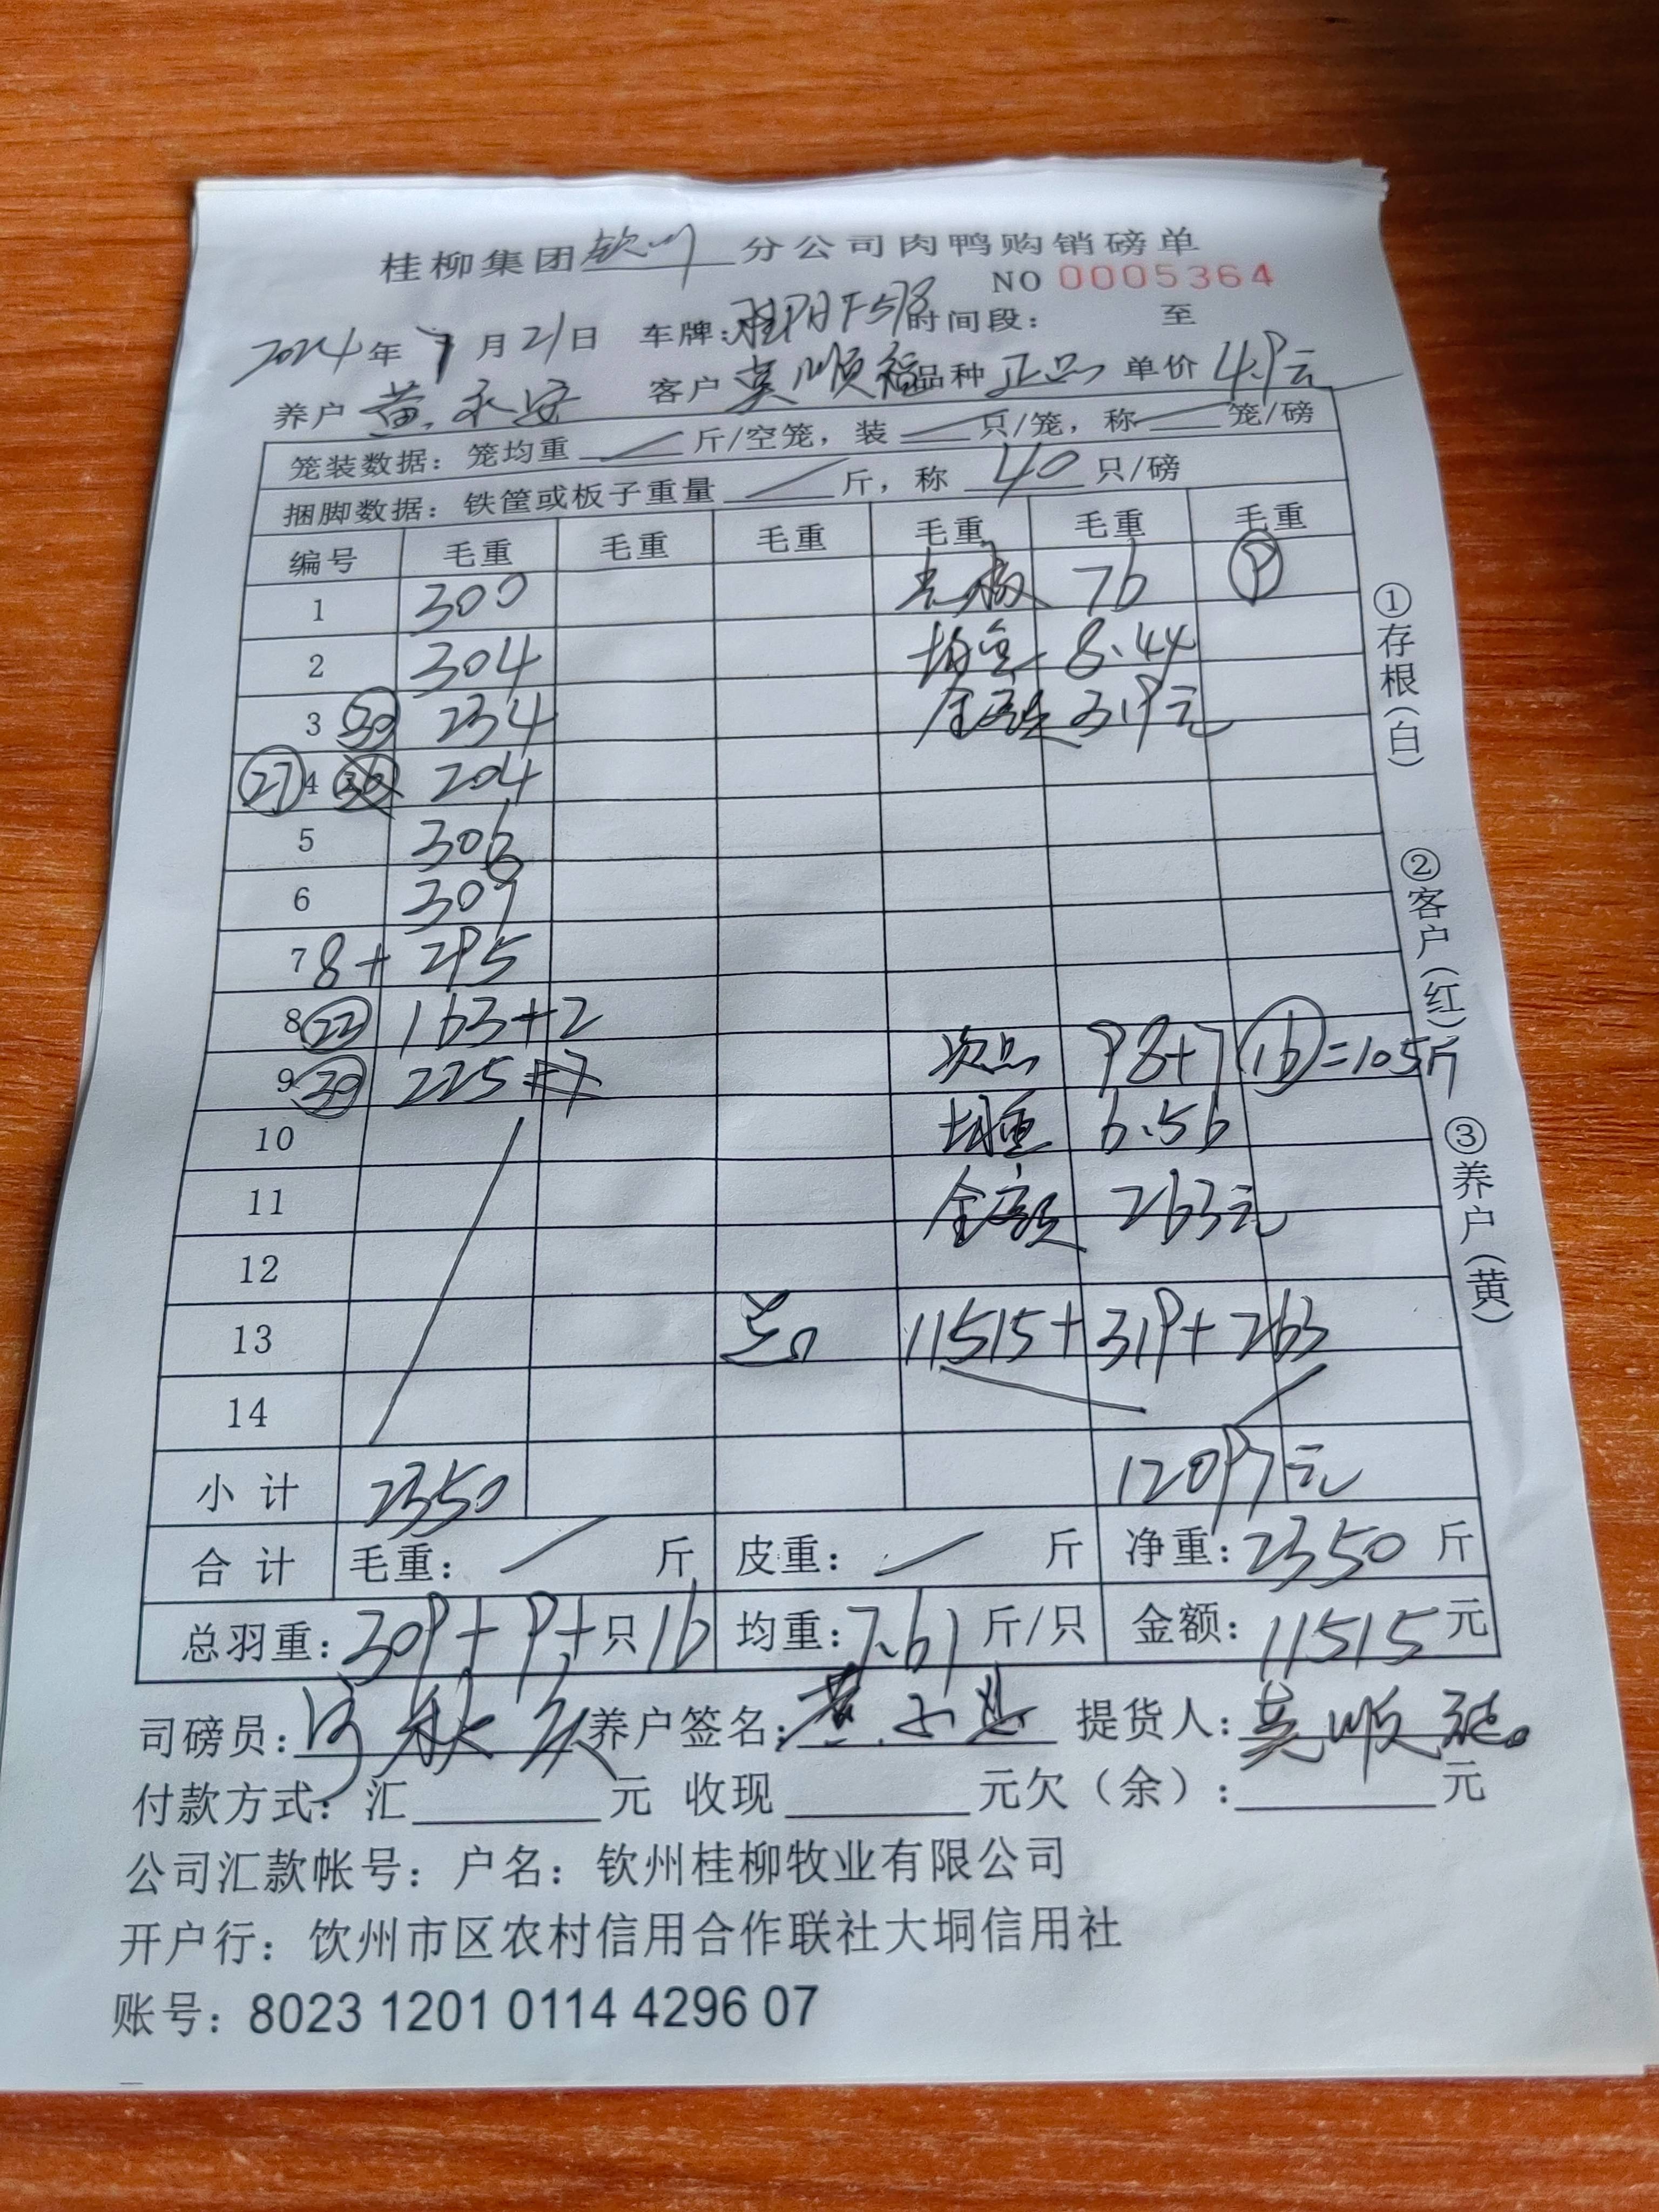 桂柳集团钦州分公司肉鸭购销磅单
NO 0005364
2024年7月21日 车牌: 时间段: 至
养户 黄永安 客户 莫顺福 品种 正品 单价 4.9元
笼装数据：笼均重 / 斤/空笼，装 / 只/笼，称 / 笼/磅
捆脚数据：铁筐或板子重量 / 斤，称 40 只/磅
编号 毛重 毛重 毛重 毛重 毛重 毛重
1 300 76 ⑨
2 304 均重 8.44
3 ㉚ 234 金额 319元
㉗ 4 204
5 306
6 309
7 8+ 295
8 ㉒ 163+2 次品 98+7 ⑯=105斤
9 ㉚ 225 均重 6.56
10
11 金额 263元
12
13 总 11515+319+263
14
小计 2350 12097元
合计 毛重： / 斤 皮重： / 斤 净重：2350斤
总羽重：309+9+只16 均重：7.61斤/只 金额：11515元
司磅员： 养户签名： 提货人：莫顺福
付款方式：汇 元 收现 元欠（余）： 元
公司汇款帐号：户名：钦州桂柳牧业有限公司
开户行：饮州市区农村信用合作联社大垌信用社
账号：8023 1201 0114 4296 07
①存根（白）
②客户（红）
③养户（黄）